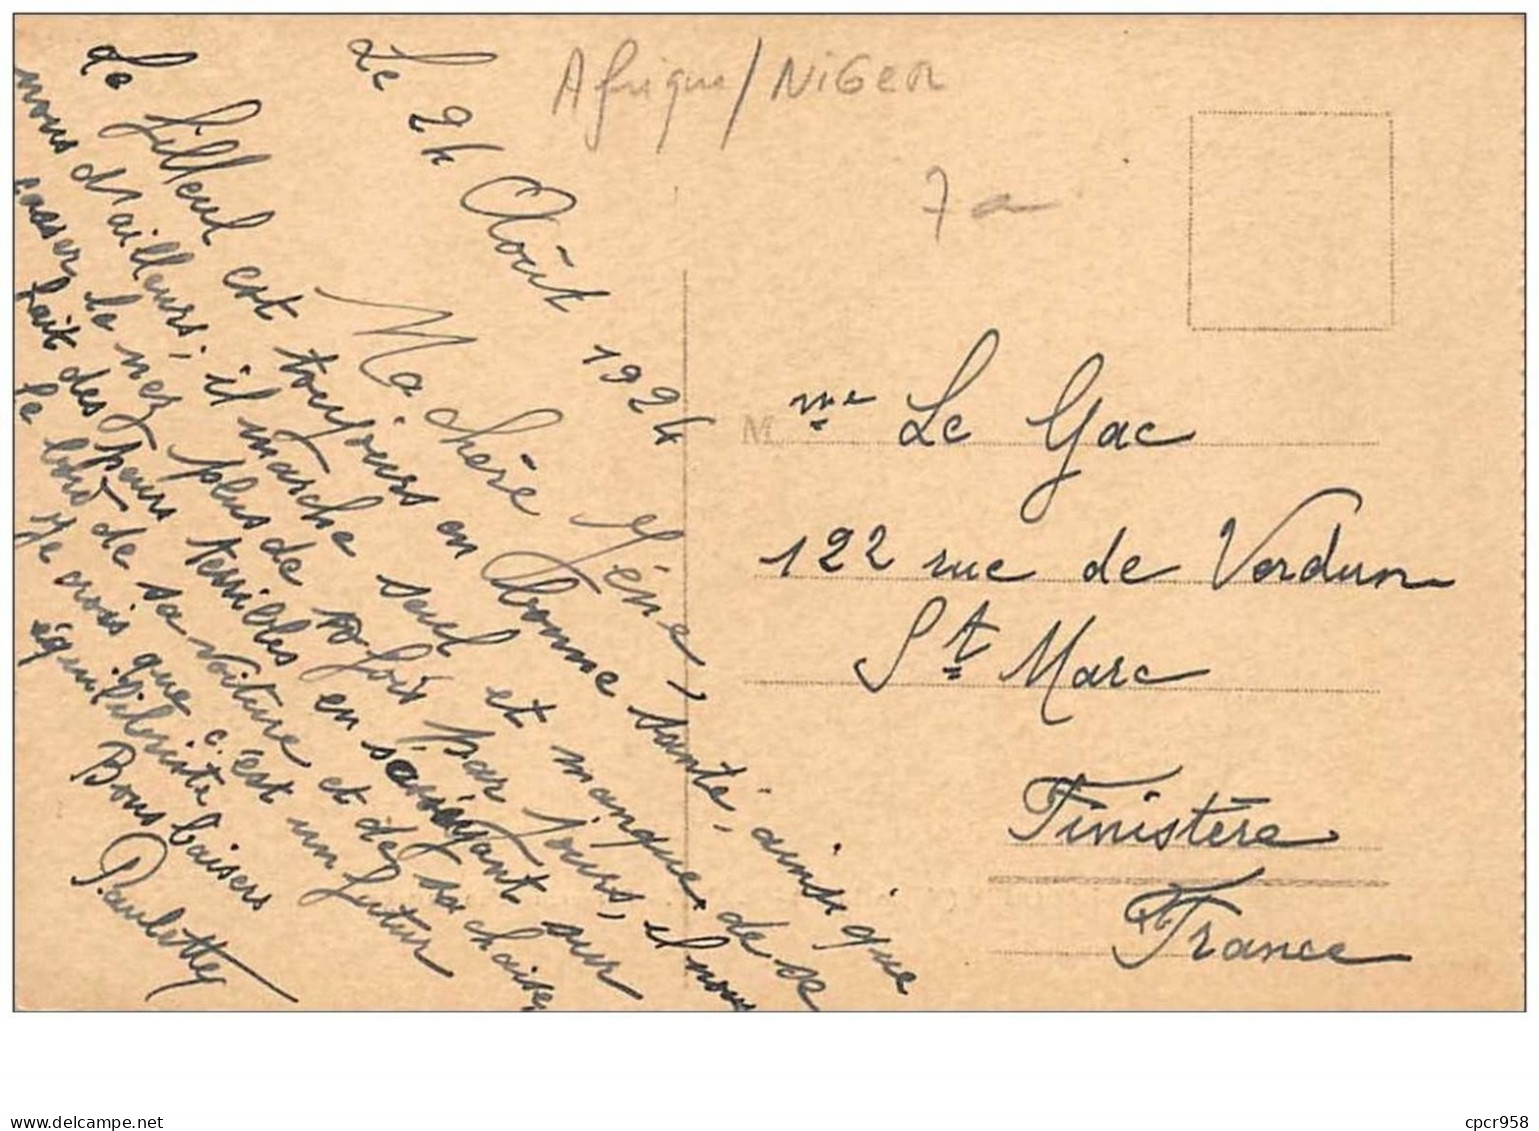 Afrique / NiGer
7
Le 24 Août 1924
Ma chère Géné,
Le filleul est toujours en bonne santé, ainsi que
nous d'ailleurs; il marche seul et manque de se
casser le nez plus de 10 fois par jours, il nous
fait des peurs terribles en s'asseyant sur
le bord de sa voiture et de sa chaise,
Je crois que c'est un futur
équilibriste
Bons baisers
Paulette
M me Le Gac
122 rue de Verdun
St Marc
Finistère
France
www.delcampe.net
cpcr958